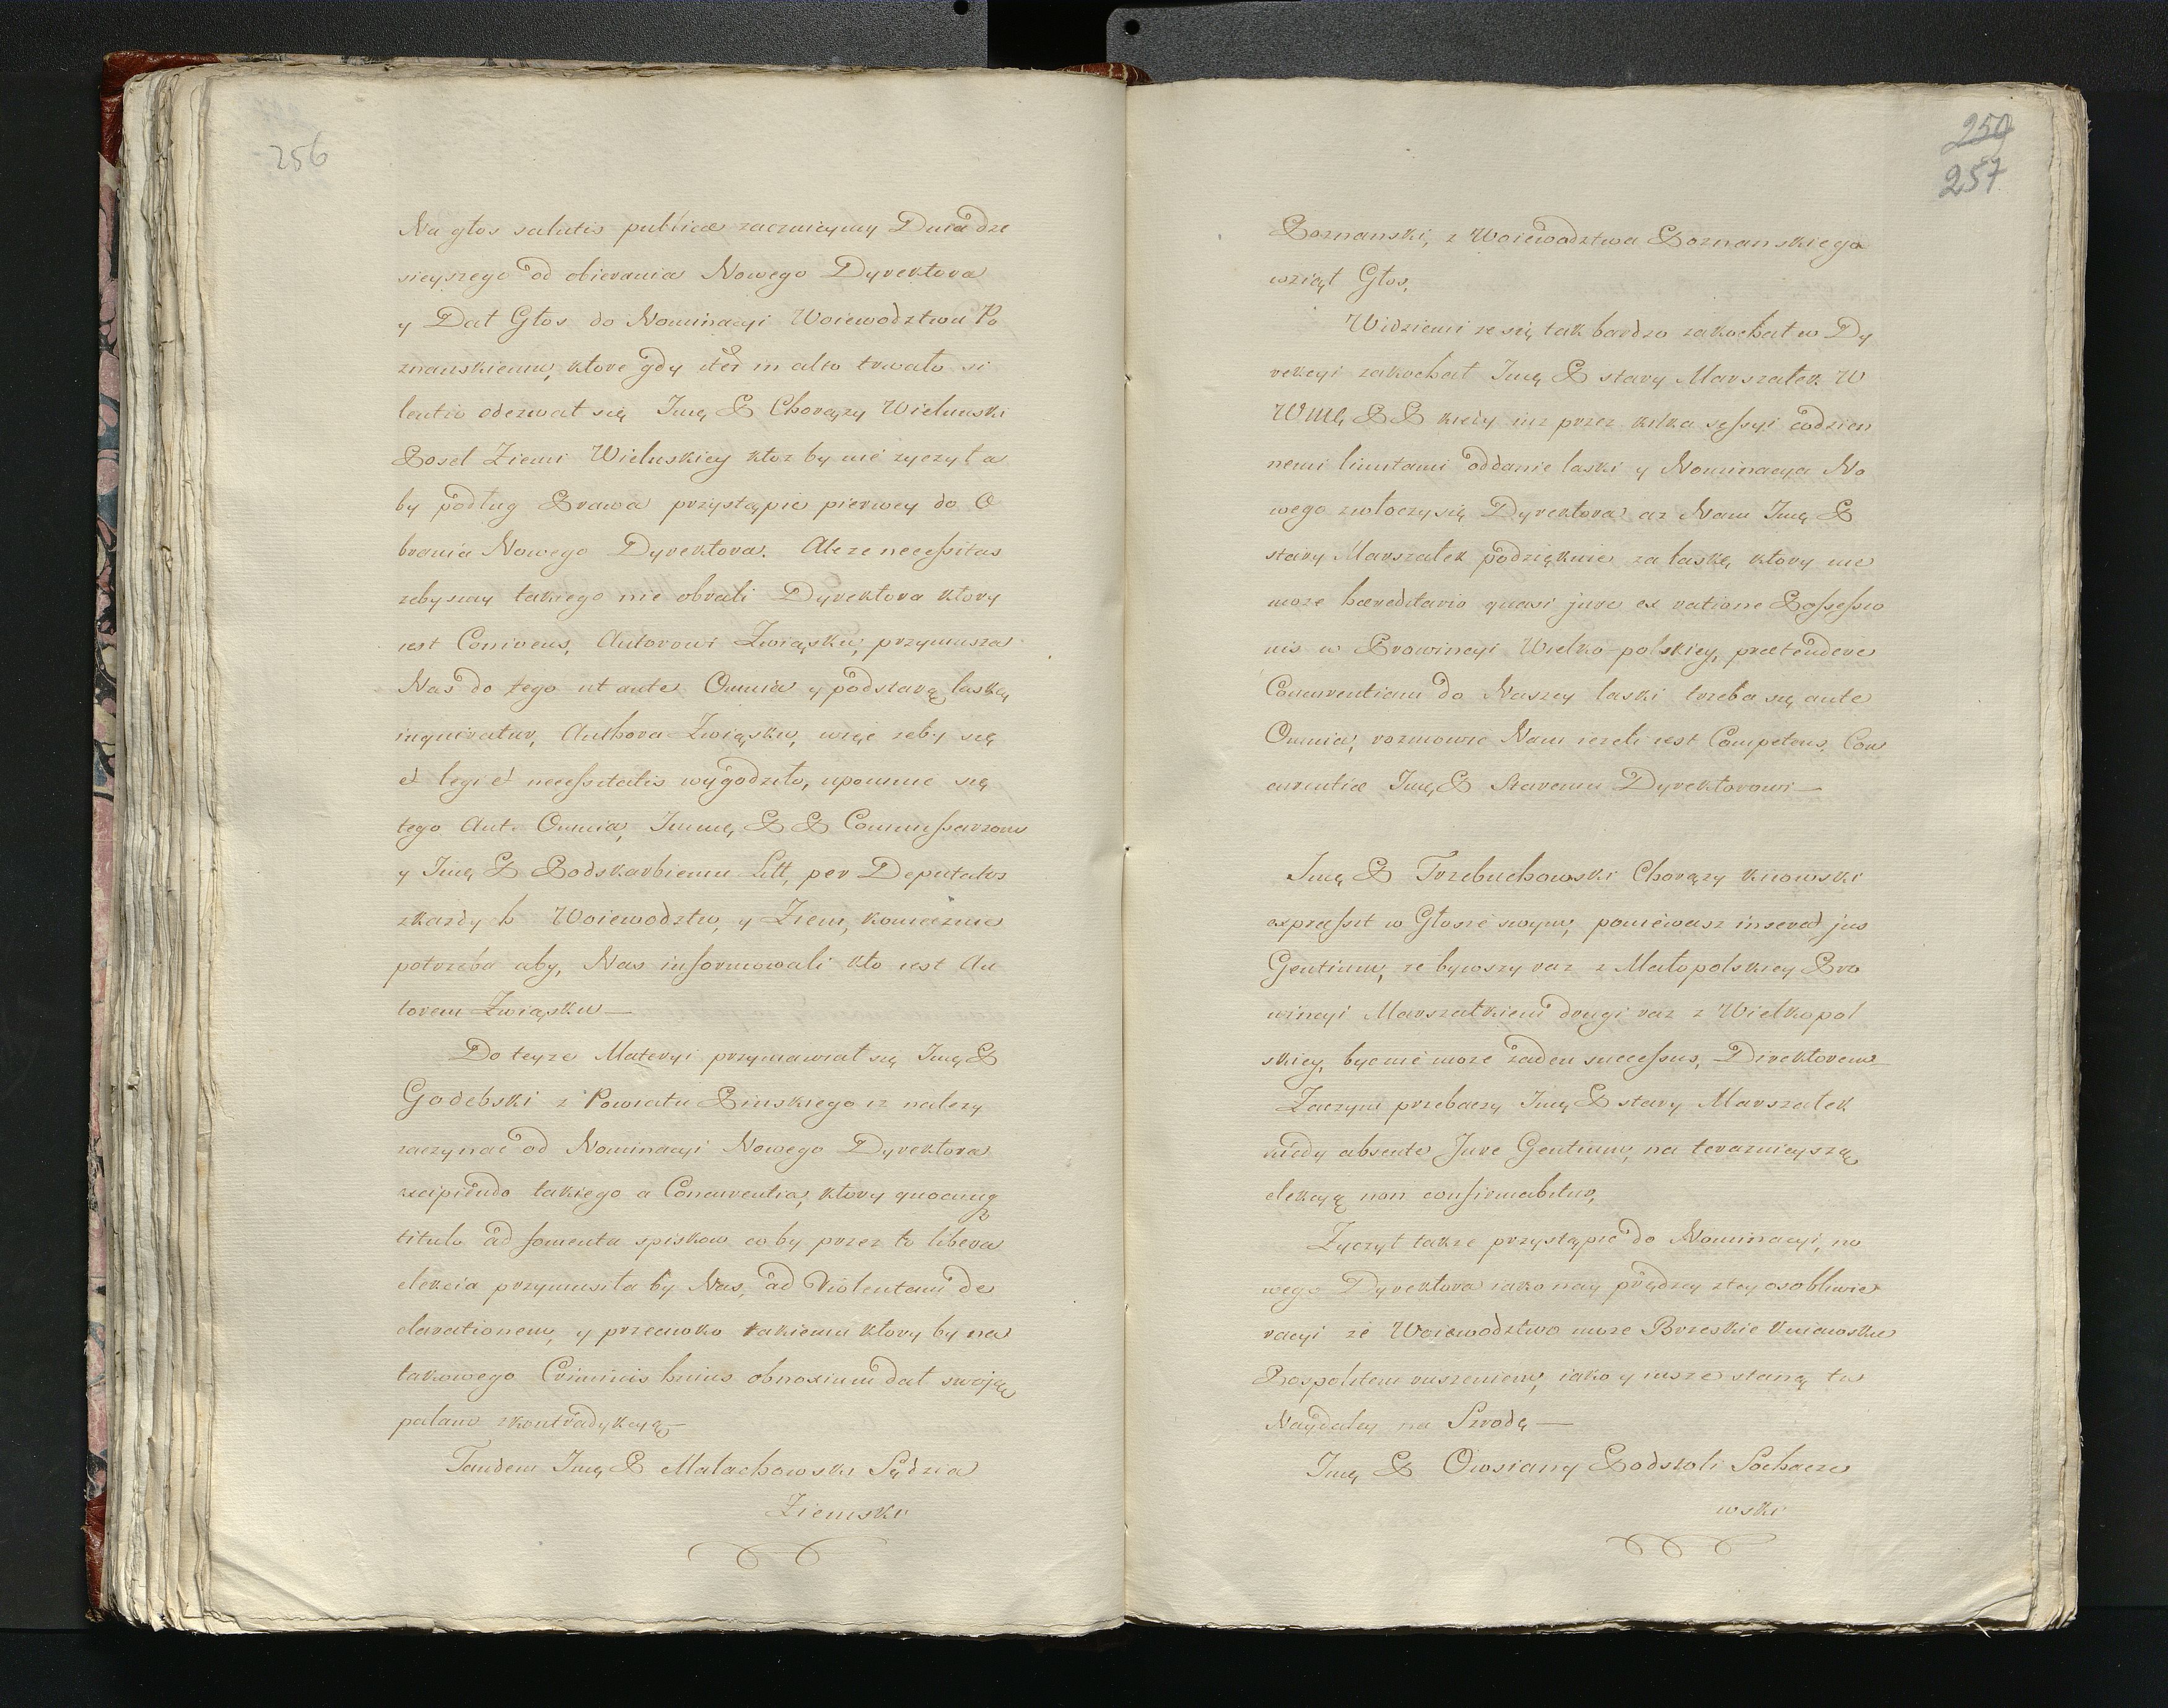 256
Na głos salutis publicæ zacznieymy Dnia dze
sieyszego od obierania Nowego Dyrektora
y Dał Głos do Nominacyi Woiewodztwu Po
znanskiemu, ktore gdy iter in alto trwało si
lentio odezwał się Imę P Chorąży Wielunski
Poseł Ziemi Wieluskiey ktoz by nie zyczył a
by podług Prawa przystąpic pierwey do O
brania Nowego Dyrektora. Ale ze necessitas
zebysmy takiego nie obrali Dyrektora ktory
iest Conivens, Autorowi Związku, przymusza
Nas do tego ut ante Omnia y pod starą laską
inquiratur, Authora Związku, więc zeby się
et legi et necessitatis wygodziło, upomnie się
tego Ant. Omnia, Immę P P Commissarzom
y Imę P Podskarbiemu Litt, per Deputatos
zkazdych Woiewodztw, y Ziem, koniecznie
potrzeba aby, Nas informowali kto iest Au
torem Związku —
Do teyze Materyi przymawiał się Imę P
Godebski z Powiatu Pinskiego iz nalezy
zaczynać od Nominacyi Nowego Dyrektora
excipiendo takiego a Concurentia, ktory quocunq
titulo ad fomenta spiskow coby przez to libera
elekcia przymusiła by Nas, ad Violentam de
clarationem, y przeciwko takiemu ktory by na
takowego Criminis huius obnoxium dał swoją
palam zkontradykcyą —
Tandem Imę P Małachowski Sędzia
Ziemski
259
257
Poznanski, z Woiewodztwa Poznanskiego
wziął Głos,
Widziemi ze się tak bardzo zakochał w Dy
rekcyi zakochał Imę P stary Marszałek W
WMę P P kiedy iuz przez kilka sessyi codzien
nemi limitami oddanie laski y Nominacya No
wego zwłoczy się Dyrektora az Nam Imę P
stary Marszałek podziękuie za laskę ktory nie
moze hæreditario quasi jure ex ratione Possessio
nis w Prowincyi Wielko-polskiey, prætendere
Concurentiam do Naszey laski trzeba się ante
Omnia, rozmowic Nam iezeli iest Competens, Con
curentiæ Imę P Staremu Dyrektorowi —
Imę P Trzebuchowski Chorąży kiiowski
expressit w Głosie swym, poniewasz inserad jus
Gentium, ze bywszy raz z Małopolskiey Pro
wincyi Marszałkiem drugi raz z Wielkopol
skiey, bydz nie moze zaden successus, Direktorem
Zaczym przebaczy Imę P stary Marszałek
kiedy absente Jure Gentium, na terazniejszą
elekcyą non confirmabitur,
Zyczył takze przystąpic do Nominacyi, no
wego Dyrektora iako nay prędzey z tey osobliwie
racyi ze Woiewodztwo moze Brzeskie kuiawskie
Pospolitem ruszeniem, iako y nasze staną tu
Naydaley na Szrodę —
Imę P Owsiany Podstoli Sochacze
wski